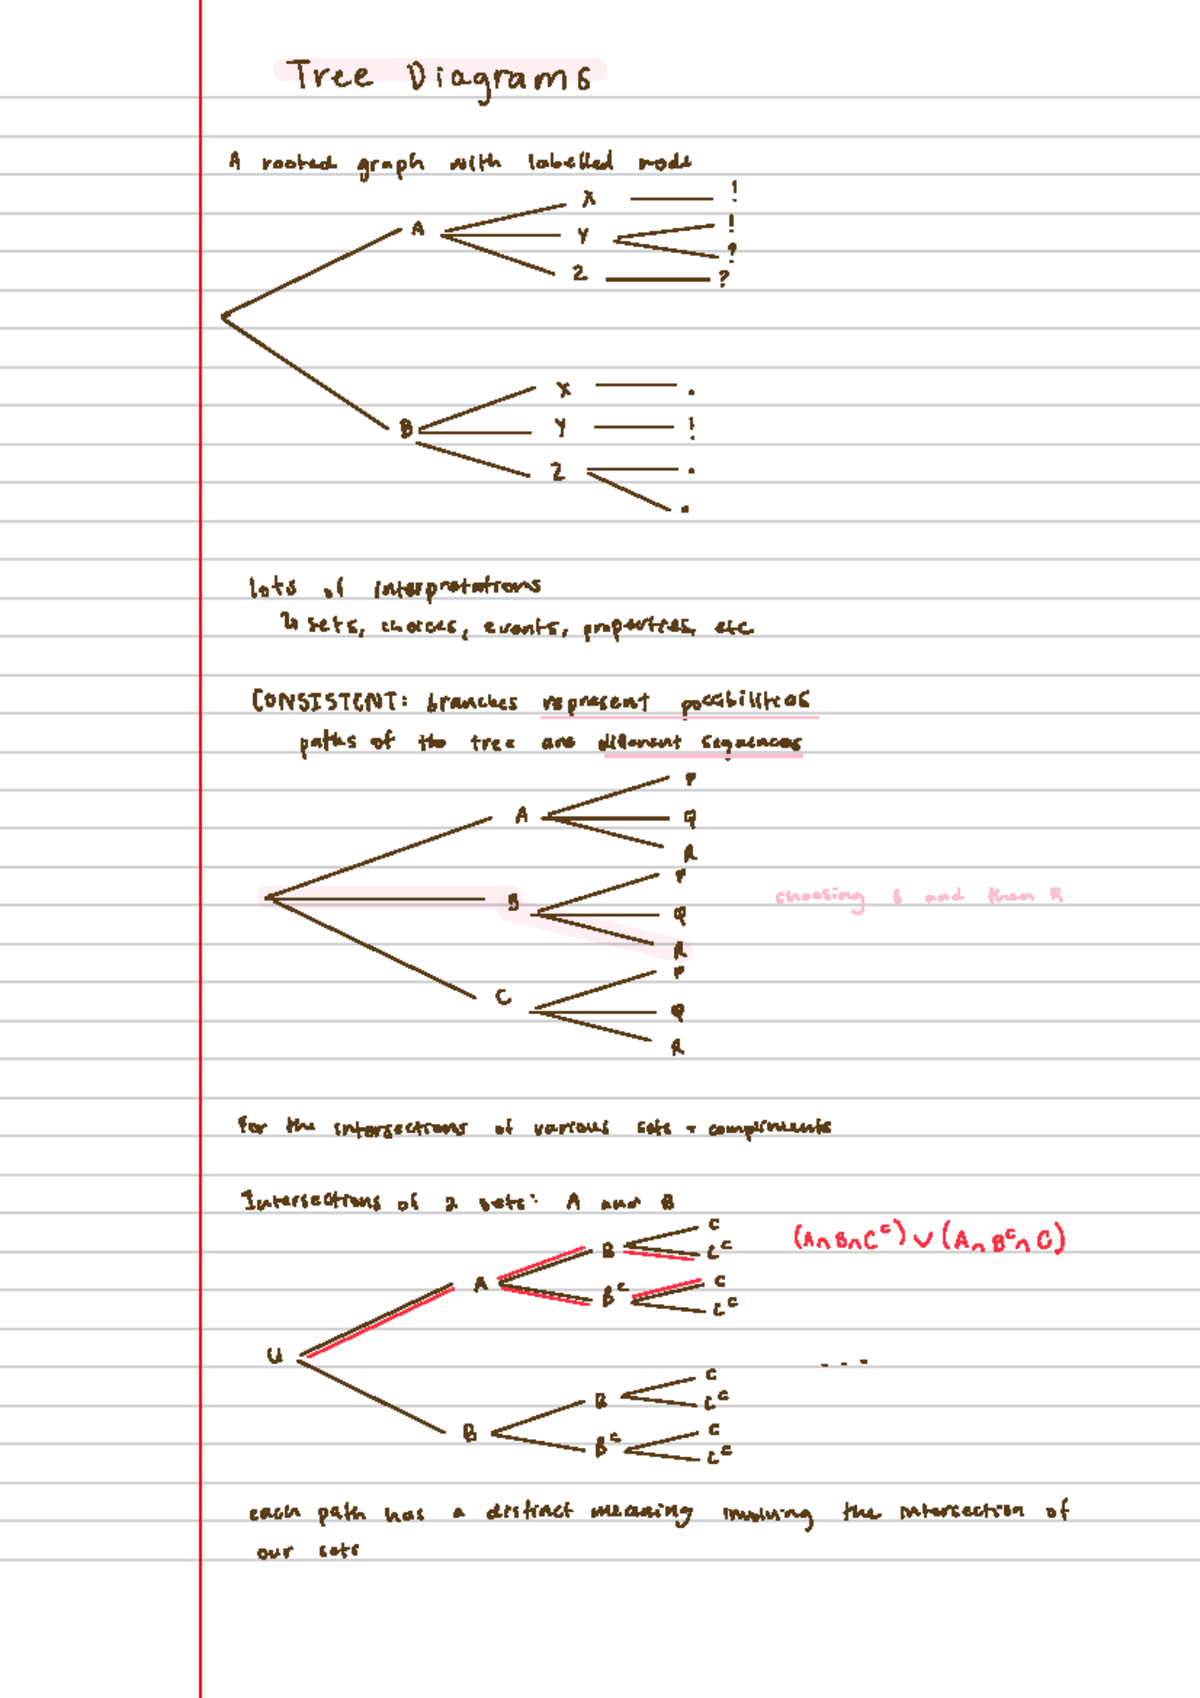 Tree Diagrams
A rooted graph with labelled node
X !
A Y !
?
Z ?
X .
B Y !
Z .
.
lots of interpretations
↳ sets, choices, events, properties, etc
CONSISTENT: branches represent possibilities
paths of the tree are different sequences
P
A Q
R
P
B Q choosing B and then R
R
P
C Q
R
For the intersections of various sets + compliments
Intersections of 2 sets: A and B
C
B C^c (A∩B∩C^c) ∪ (A∩B^c∩C)
A B^c C
C^c
U
C
B C^c
B B^c C
C^c
...
each path has a distinct meaning involving the intersection of
our sets